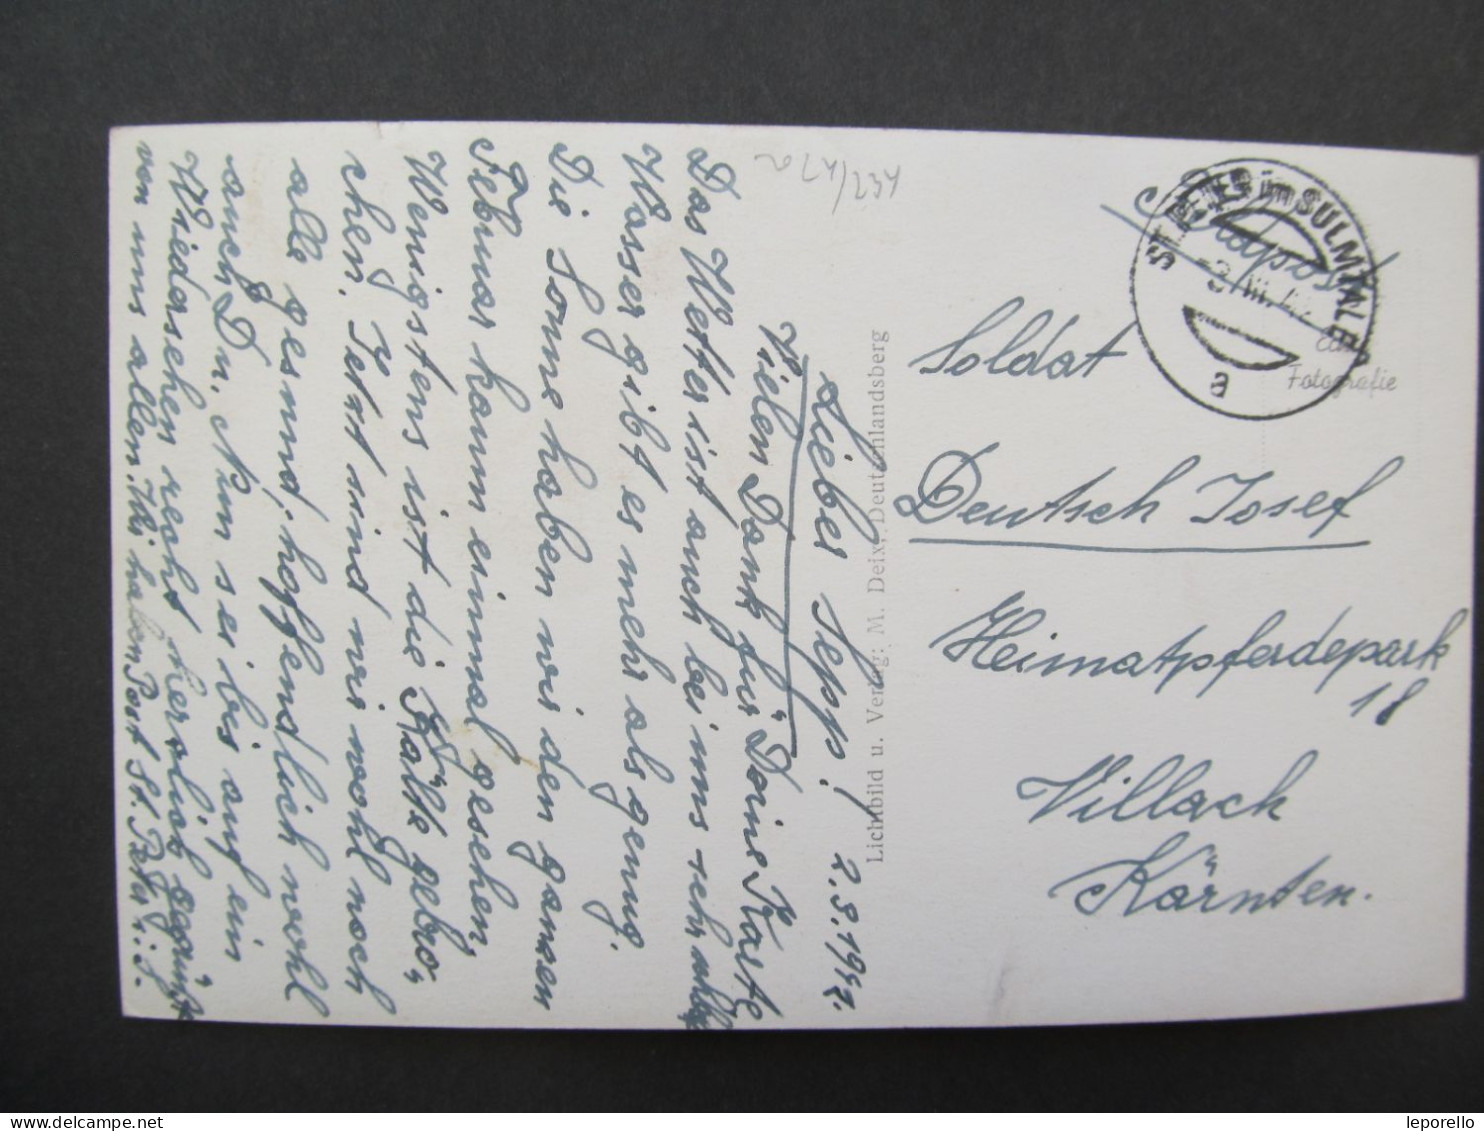 Feldpost
ST. PETER im SULMTALE
a
Echte
Fotografie
Soldat
Deutsch Josef
Heimatpferdepark
18
Villach
Kärnten.
Lichtbild u. Verlag: M. Deix, Deutschlandsberg
Lieber Sepp! 2.3.1944.
Vielen Dank für Deine Karte
Das Wetter ist auch bei uns sehr
Wasser gibt es mehr als genug.
Die Sonne haben wir den ganzen
Februar kaum einmal gesehen,
Wenigstens ist die Kälte gebro„
chen. Jetzt sind wir wohl noch
alle gesund, hoffendlich wohl
auch Du. Nun sei bis auf ein
Wiedersehen recht herzlich gegrüßt
von uns allen. Wir haben Post St. Peter i. S.